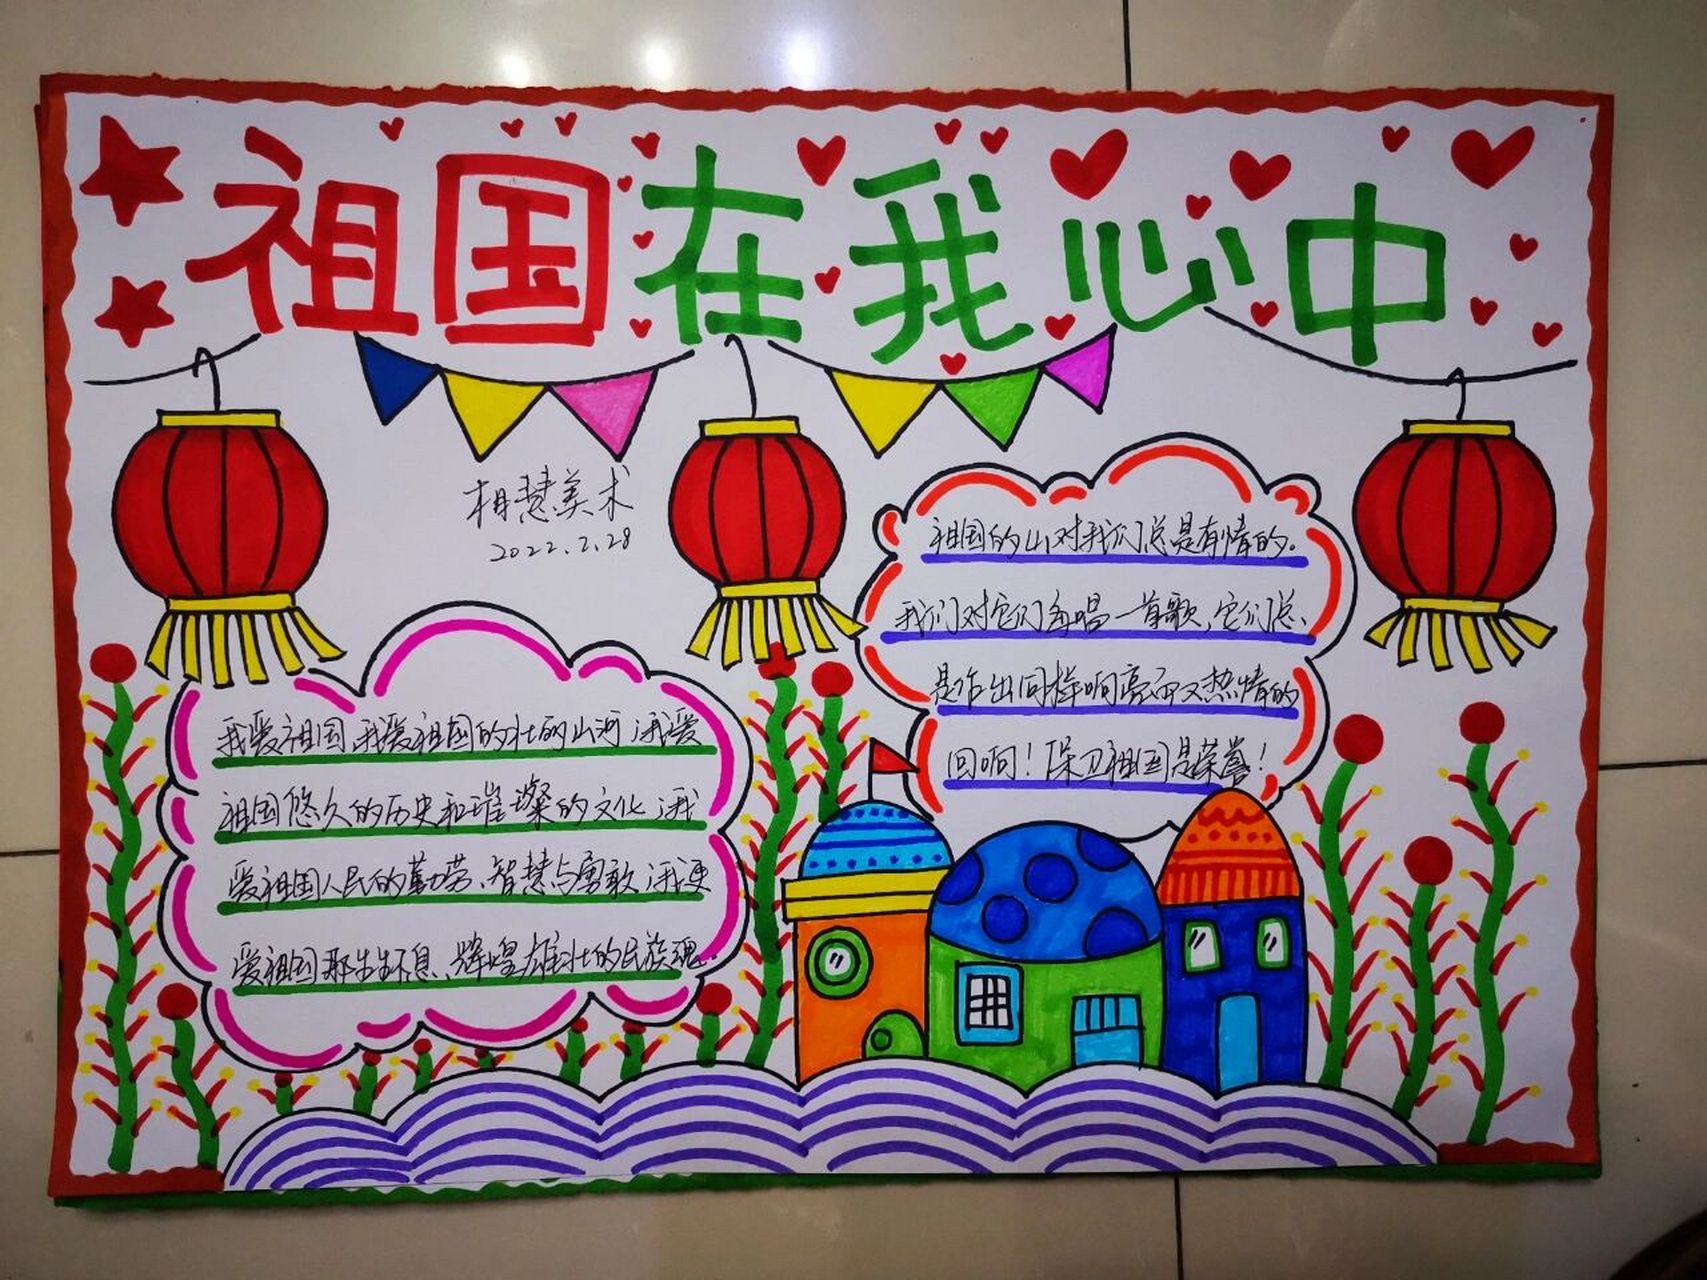 祖国在我心中
相慧美术
2022.2.28
祖国的山对我们总是有情的。
我们对它们每唱一首歌,它们总
是作出同样响亮而又热情的
回响!保卫祖国是荣誉!
我爱祖国,我爱祖国的壮丽山河;我爱
祖国悠久的历史和璀璨的文化;我
爱祖国人民的勤劳、智慧与勇敢;我更
爱祖国那生生不息、辉煌雄壮的民族魂。